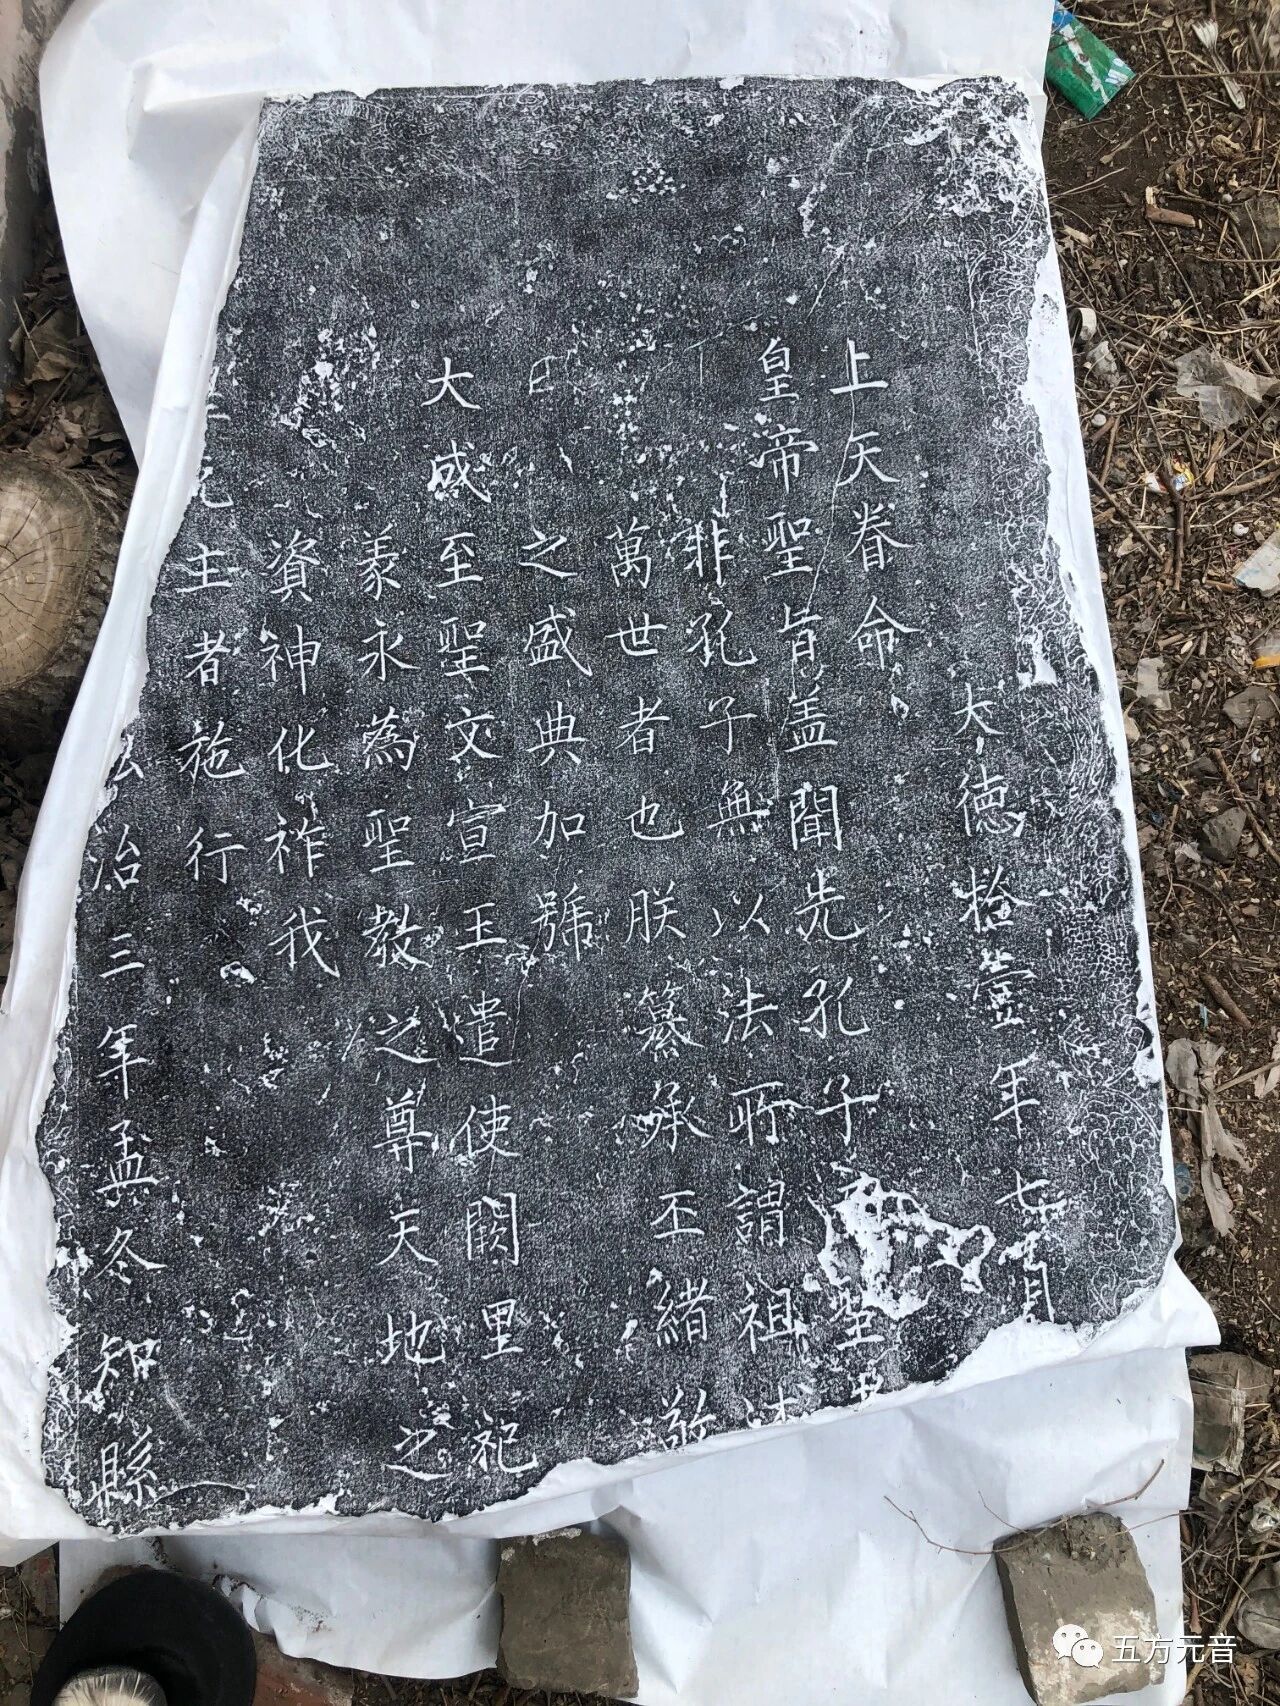 大德拾壹年七月
上天眷命
皇帝聖旨盖聞先孔子聖
非孔子無以法所謂祖述
萬世者也朕纂承丕緒敬
之盛典加號
大成至聖文宣王遣使闕里祀
義永為聖教之尊天地之
資神化祚我
元主者施行
弘治三年孟冬知縣
五方元音